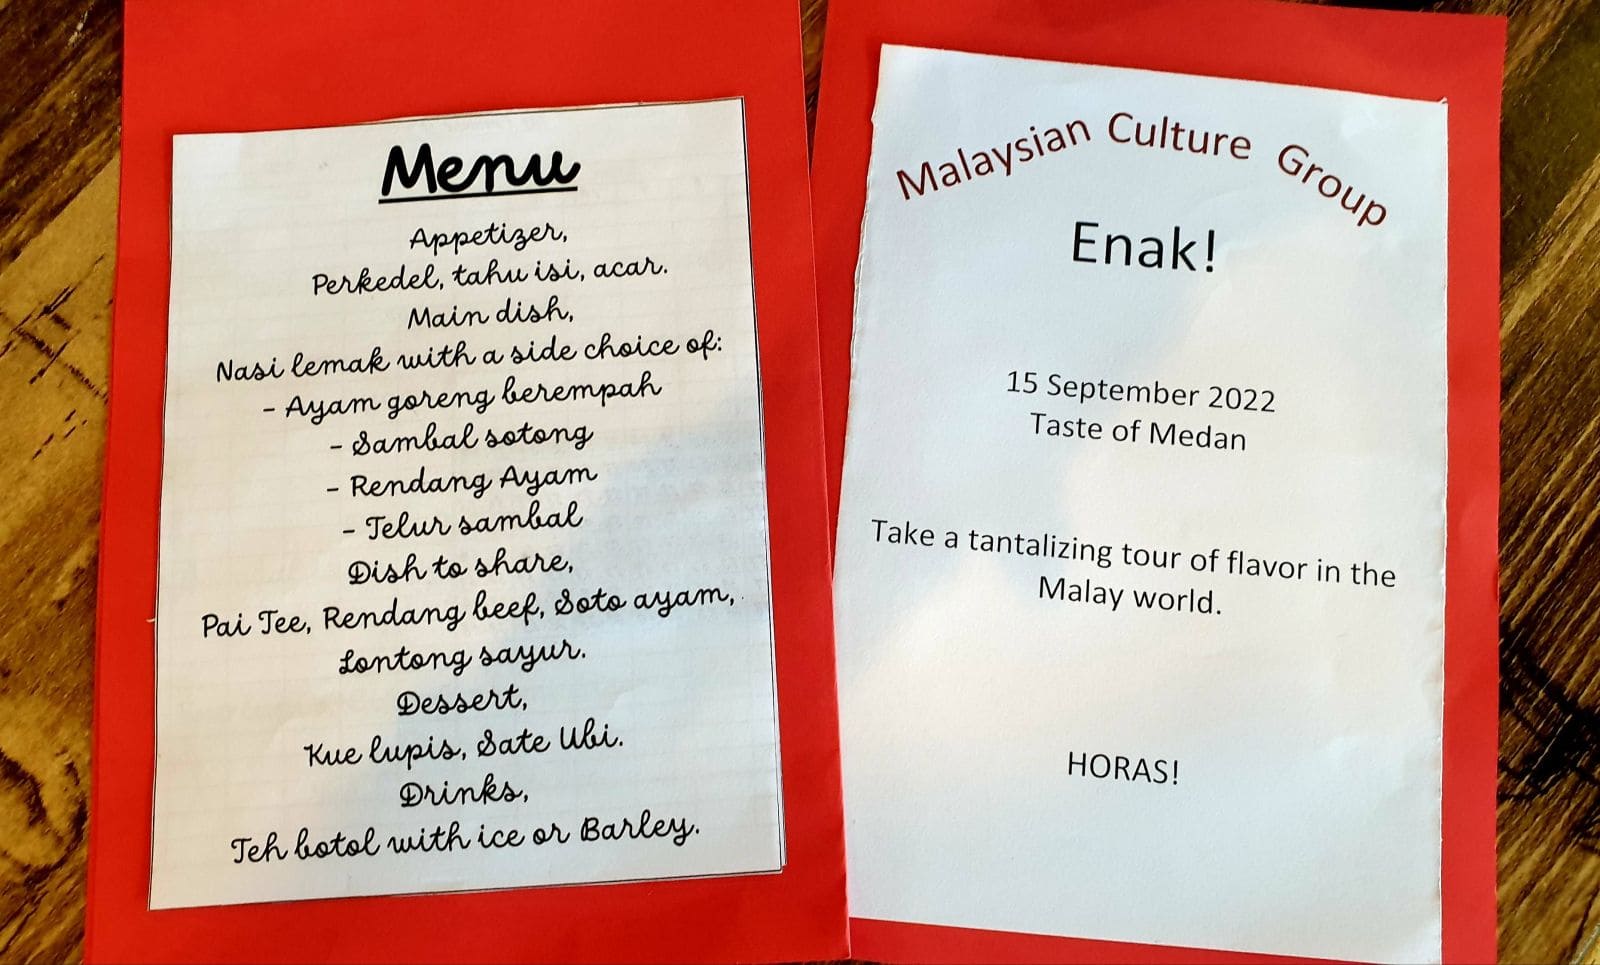 Menu
Appetizer,
Perkedel, tahu isi, acar.
Main dish,
Nasi lemak with a side choice of:
- Ayam goreng berempah
- Sambal sotong
- Rendang Ayam
- Telur sambal
Dish to share,
Pai Tee, Rendang beef, Soto ayam,
Lontong sayur.
Dessert,
Kue lupis, Sate Ubi.
Drinks,
Teh botol with ice or Barley.
Malaysian Culture Group
Enak!
15 September 2022
Taste of Medan
Take a tantalizing tour of flavor in the
Malay world.
HORAS!